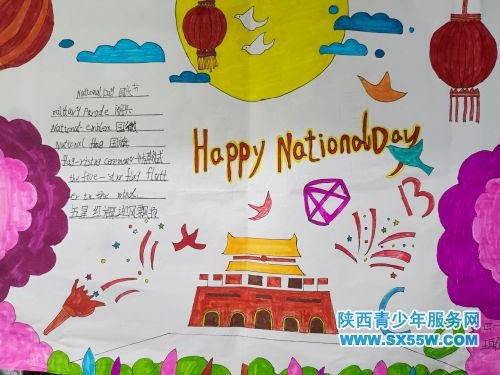 National Day 国庆节
military Parade 阅兵
National emblem 国徽
National flag 国旗
flag-rising ceremony 升旗仪式
the five-star flag flutt
er in the wind.
五星红旗迎风飘扬
Happy National Day
陕西青少年服务网
WWW.SX55W.COM